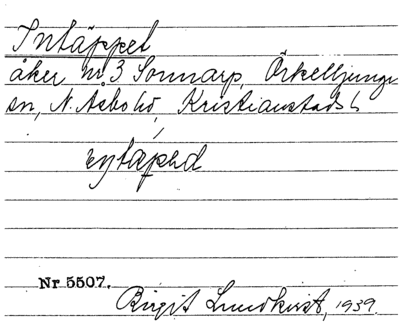 Intäppet
åker nr 3 Sonnarp, Örkelljunga
sn, N. Åsbo hd, Kristianstads l
Nr 5507.
Birgit Lundkvist, 1939.